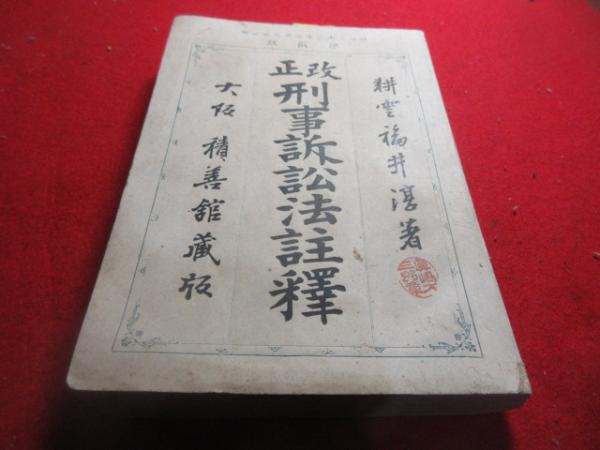 耕雲福井淳著
改正
刑事訴訟法註釋
大阪積善舘藏版